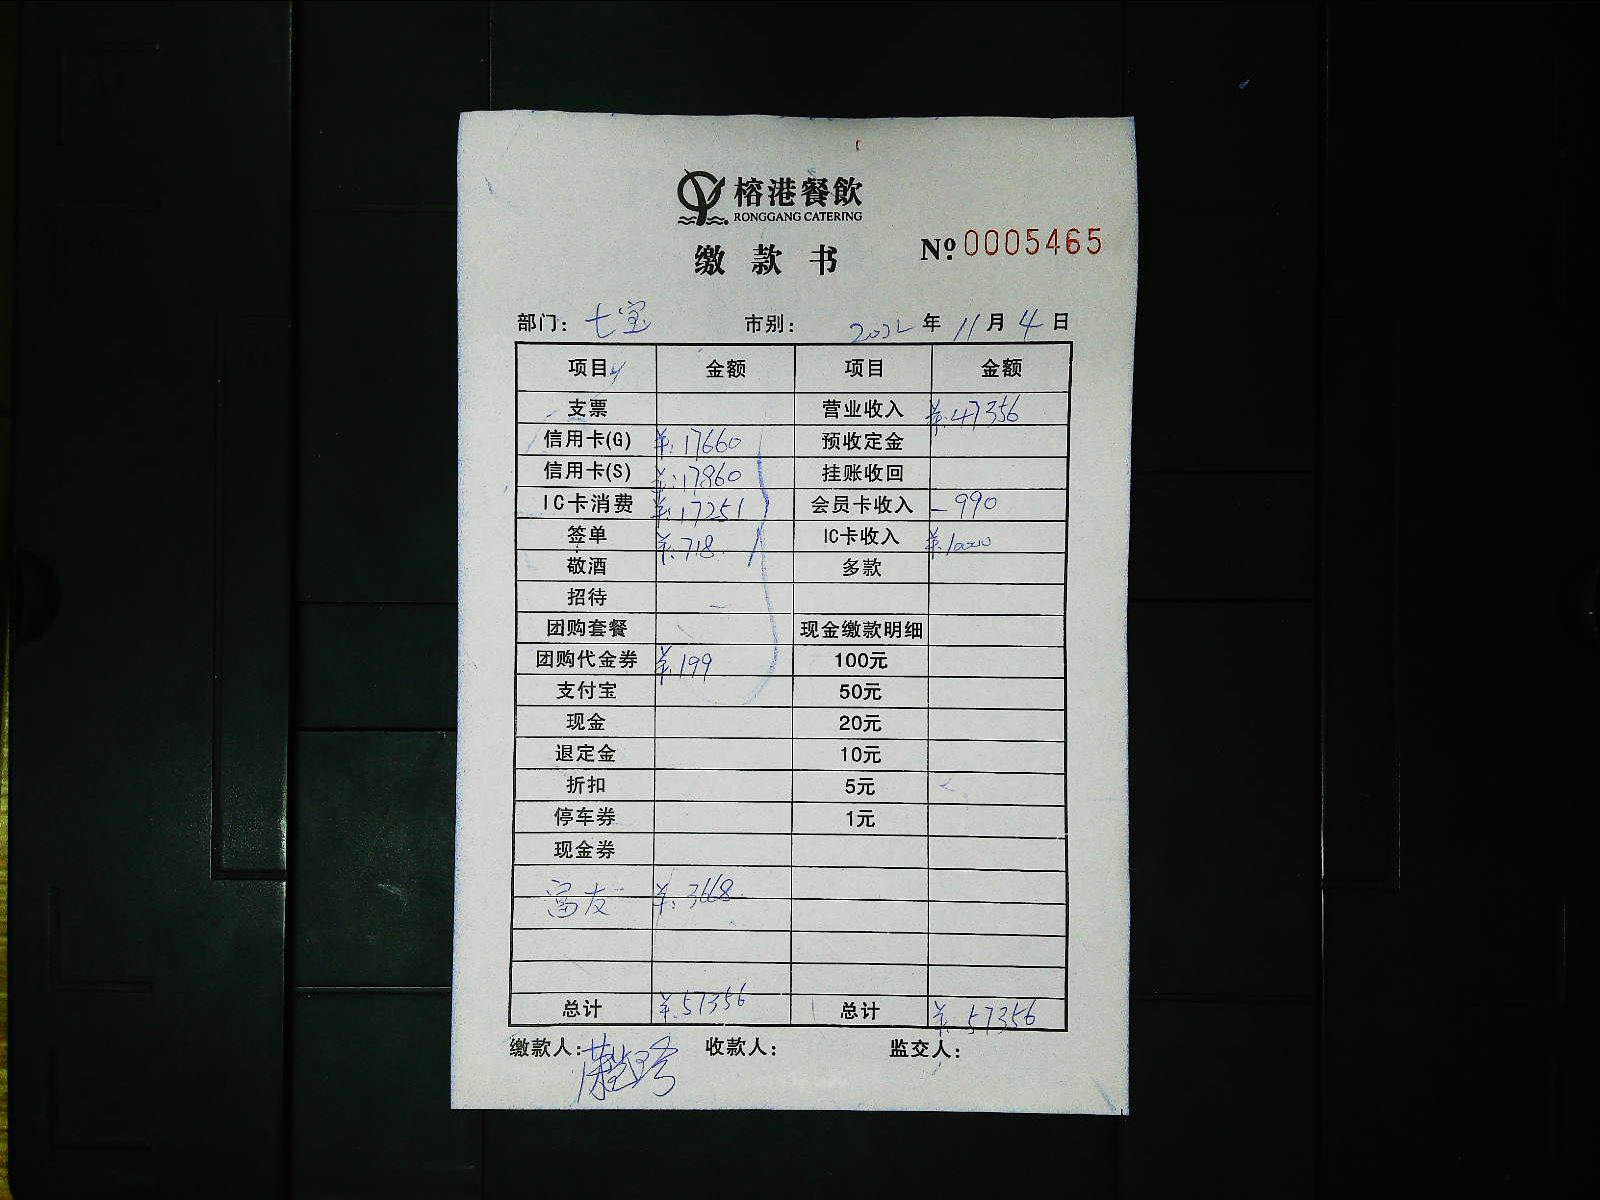 榕港餐飲
RONGGANG CATERING
缴款书 Nº 0005465
部门: 七宝 市别: 2022年11月4日
项目 金额 项目 金额
支票 营业收入 ¥:47356
信用卡(G) ¥:17660 预收定金
信用卡(S) ¥:17860 挂账收回
IC卡消费 ¥:17251 会员卡收入 -990
签单 ¥:718 IC卡收入 ¥:10000
敬酒 多款
招待
团购套餐 现金缴款明细
团购代金券 ¥:199 100元
支付宝 50元
现金 20元
退定金 10元
折扣 5元
停车券 1元
现金券
富友 ¥:3668
总计 ¥:57356 总计 ¥:57356
缴款人: 收款人: 监交人: